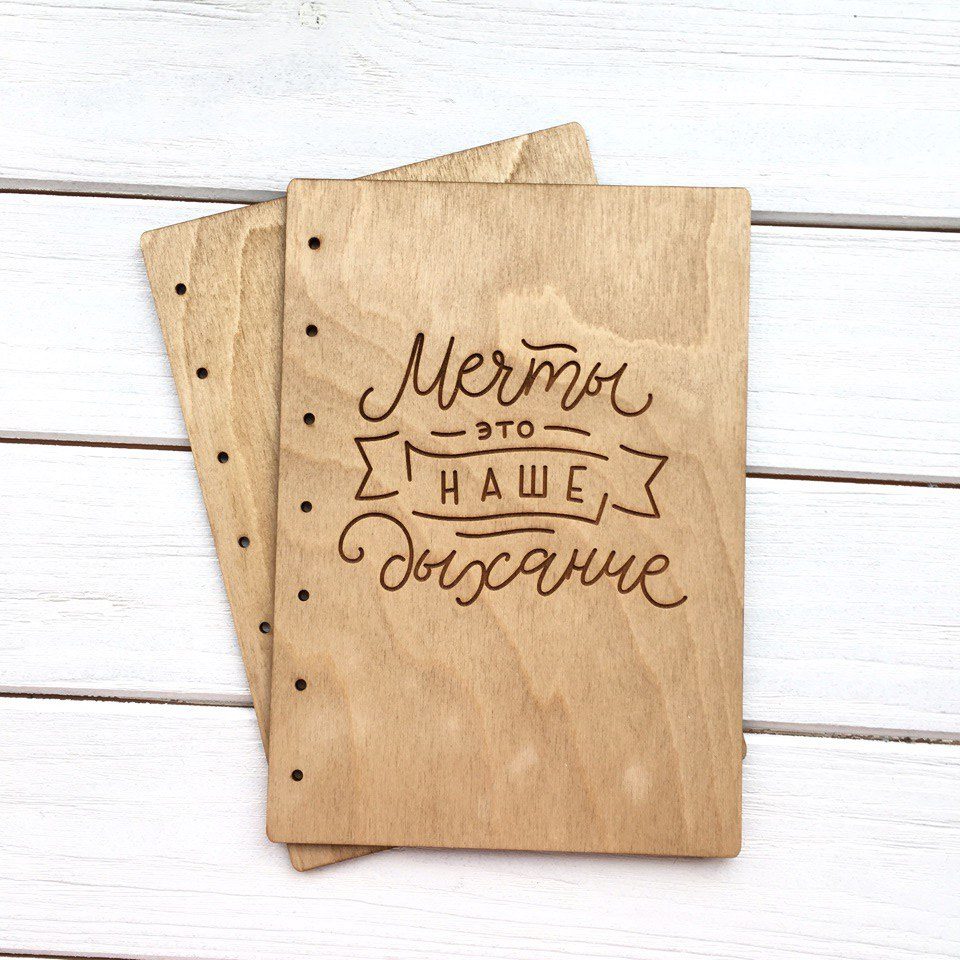 Мечты
это
НАШЕ
дыхание